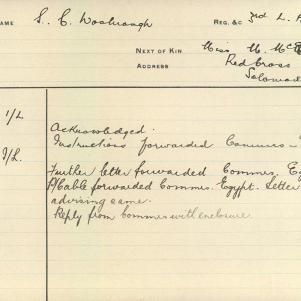 NAME S. C. Woolnough REG. &C 3rd L.
NEXT OF KIN Miss M.
ADDRESS Red Cross
1/L Acknowledged.
Instructions forwarded Commrs —
I/L. Further letter forwarded Commrs. Eg
P/Cable forwarded Commrs. Egypt. Letter
advising same.
Reply from Commrs with enclosure.